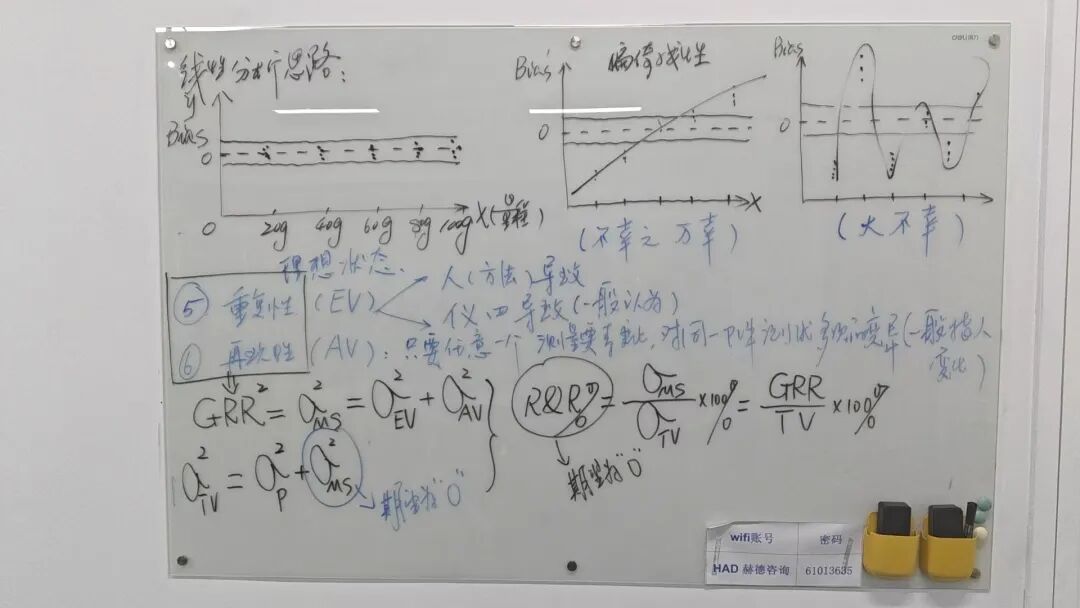 线性分析思路：
Bias
0
0
20g 40g 60g 80g 100g X(量程)
理想状态.
Bias
偏倚线性
0
X
(不幸之万幸)
Bias
0
(大不幸)
⑤ 重复性 (EV)
人(方法)导致
仪四导致(一般认为)
⑥ 再现性 (AV)：只要任意一个测量要素变化，对同一样
(一般指人变化)
GRR² = σ²MS = σ²EV + σ²AV
σ²TV = σ²P + σ²MS
期望为"0"
R&R% = σMS/σTV ×100% = GRR/TV ×100%
期望为"0"
wifi账号 密码
HAD 赫德咨询 61013635
deli